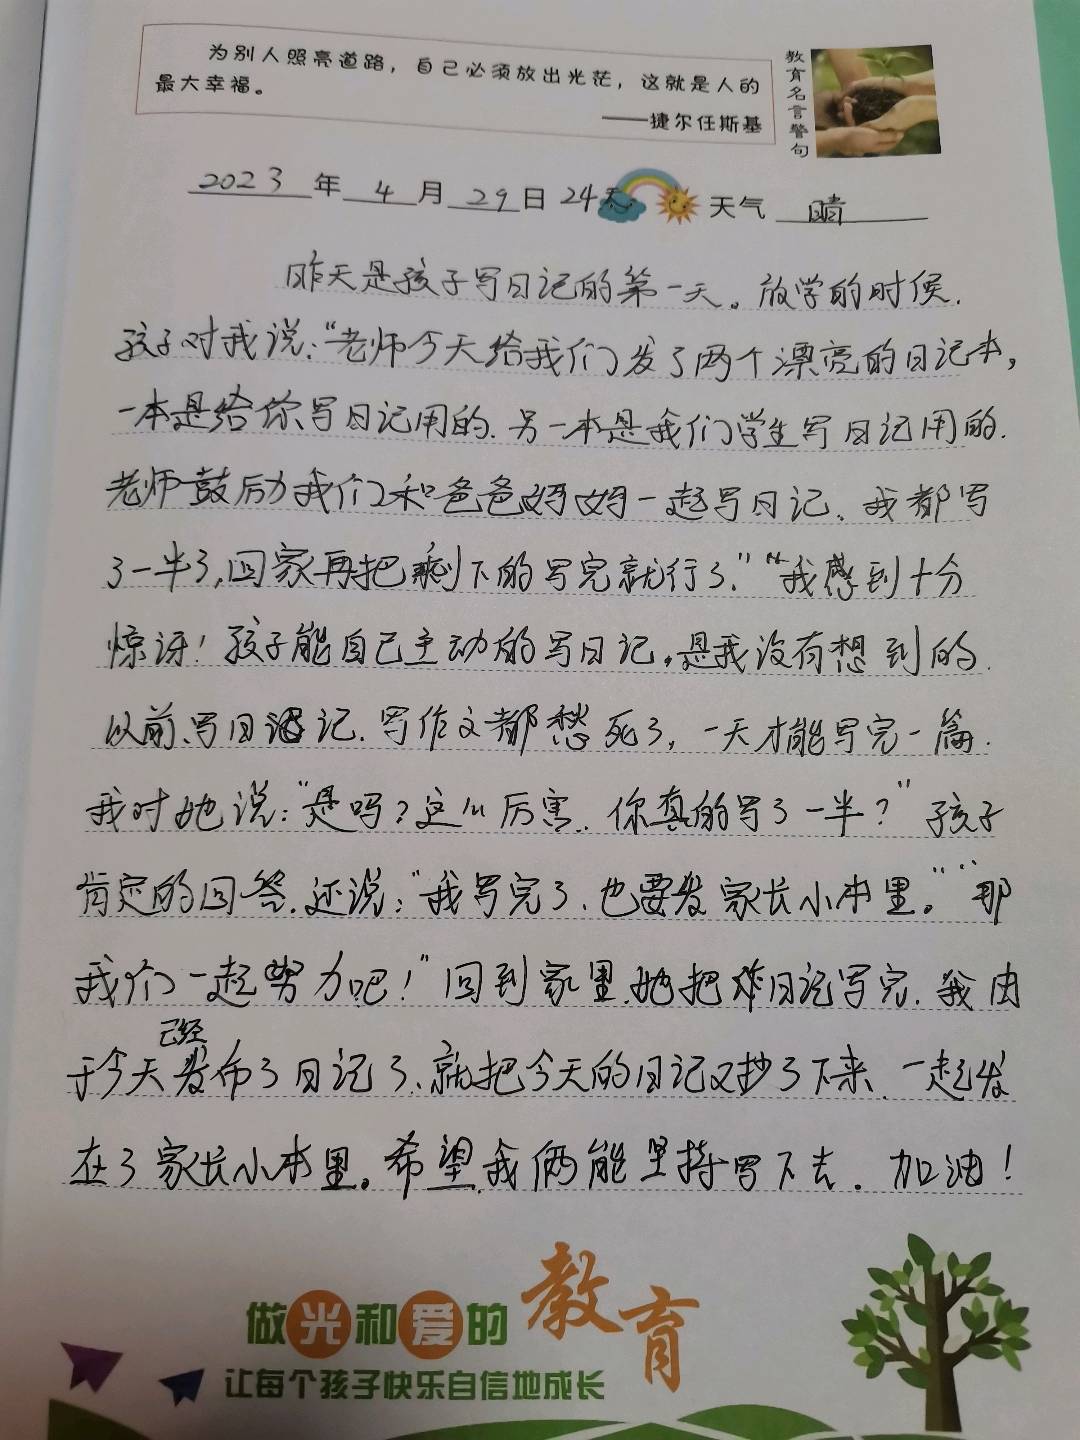 为别人照亮道路，自己必须放出光茫，这就是人的
最大幸福。
——捷尔任斯基
教育名言警句
2023年4月29日 24天 天气 晴
昨天是孩子写日记的第一天。放学的时候.
孩子对我说:"老师今天给我们发了两个漂亮的日记本,
一本是给你写日记用的.另一本是我们学生写日记用的.
老师鼓励我们和爸爸妈妈一起写日记、我都写
了一半了,回家再把剩下的写完就行了."“我感到十分
惊讶!孩子能自己主动的写日记。是我没有想到的.
以前写日记.写作文都愁死了,一天才能写完一篇.
我对她说:"是吗?这么厉害.你真的写了一半?"孩子
肯定的回答.还说:"我写完了.也要发家长小本里。"“那
我们一起努力吧!"回到家里.她把昨日记写完.我由
于今天已经发布了日记了.就把今天的日记又抄了下来、一起发
在了家长小本里。希望我俩能坚持写下去.加油!
做光和爱的教育
让每个孩子快乐自信地成长